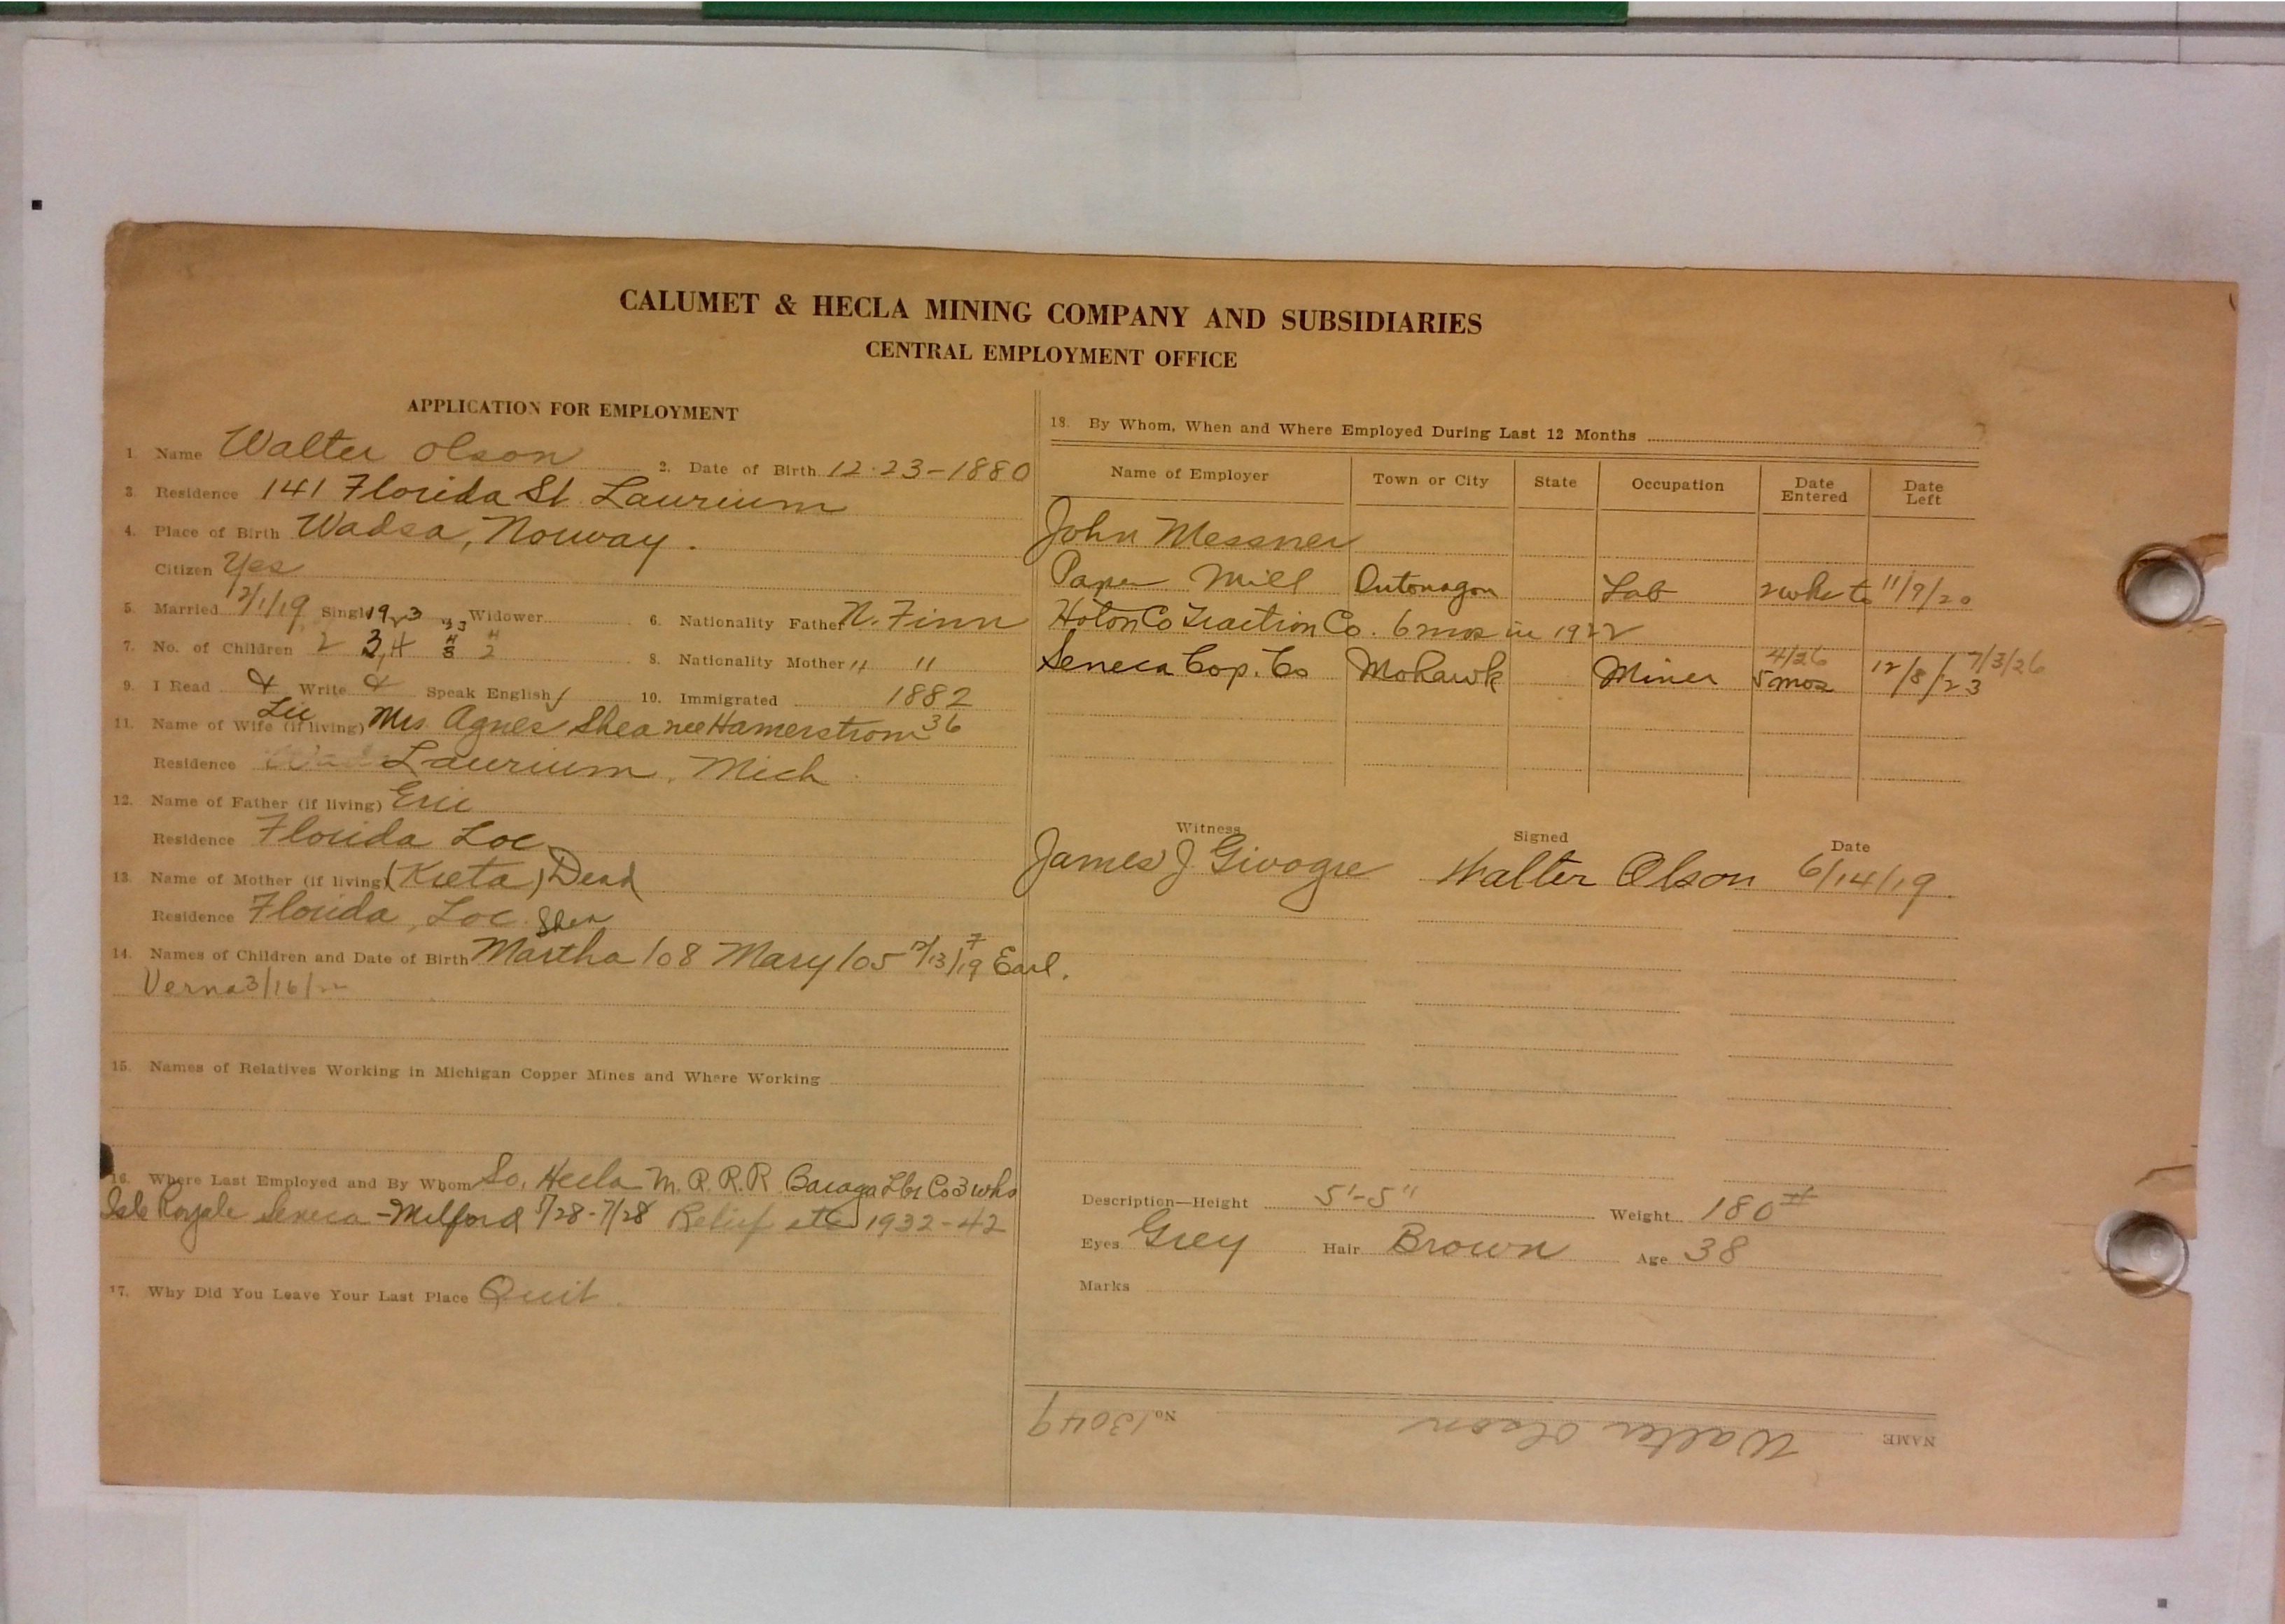 CALUMET & HECLA MINING COMPANY AND SUBSIDIARIES
CENTRAL EMPLOYMENT OFFICE
APPLICATION FOR EMPLOYMENT
1. Name Walter Olson 2. Date of Birth 12-23-1880
3. Residence 141 Florida St. Laurium
4. Place of Birth Wadsa, Norway.
Citizen Yes
5. Married 12/1/19 Single 1923 33 Widower 6. Nationality Father N. Finn
7. No. of Children 2 3, 4 8. Nationality Mother " "
9. I Read & Write & Speak English / 10. Immigrated 1882
11. Name of Wife (if living) Mrs Agnes Shea nee Hamerstrom 36
Residence Laurium, Mich
12. Name of Father (if living) Eric
Residence Florida Loc
13. Name of Mother (if living) (Kreta) Dead
Residence Florida, Loc. Shea
14. Names of Children and Date of Birth Martha /08 Mary /05 Earl.
Verna 3/16/22
15. Names of Relatives Working in Michigan Copper Mines and Where Working
16. Where Last Employed and By Whom So. Hecla M. R. R. R Baraga Lbr Co 3 wks
Isle Royale Seneca - Milford 5/28-7/28 Relief etc 1932-42
17. Why Did You Leave Your Last Place Quit.
18. By Whom, When and Where Employed During Last 12 Months
Name of Employer Town or City State Occupation Date Entered Date Left
John Messner
Paper Mill Ontonagon Lab 2 wks to 11/9/20
Hoton Co Traction Co. 6 mos in 1922
4/26 7/3/26
Seneca Cop. Co Mohawk Miner 5 mos 12/8/23
Witness Signed Date
James J. Givogre Walter Olson 6/14/19
Description—Height 5'-5" Weight 180#
Eyes Grey Hair Brown Age 38
Marks
NAME Walter Olson No. 13049